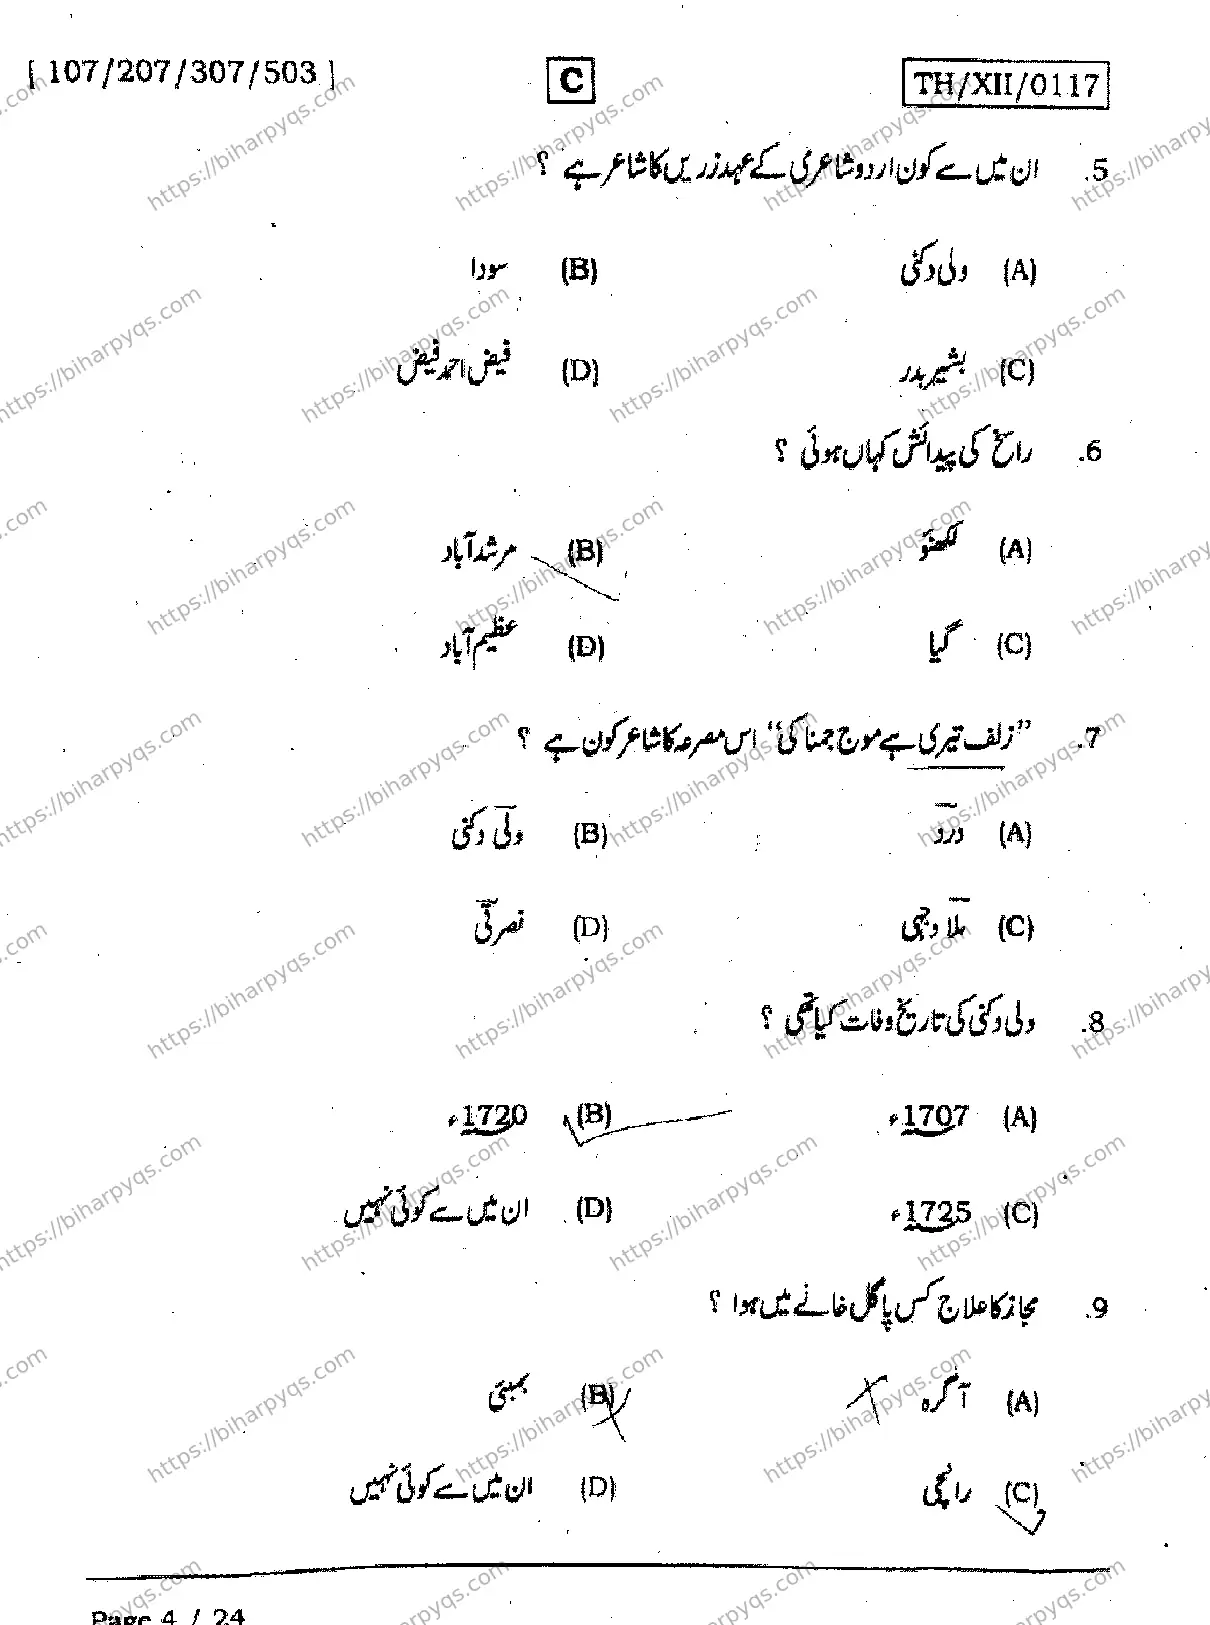 [ 107/207/307/503 ] C TH/XII/0117
5. ان میں سے کون اردو شاعری کے عہد زریں کا شاعر ہے ؟
(A) ولی دکنی (B) سودا
(C) بشیر بدر (D) فیض احمد فیض
6. راسخ کی پیدائش کہاں ہوئی ؟
(A) لکھنؤ (B) مرشدآباد
(C) گیا (D) عظیم آباد
7. ”زلف تیری ہے موج جمنا کی“ اس مصرعہ کا شاعر کون ہے ؟
(A) درد (B) ولی دکنی
(C) ملا وجہی (D) نصرتی
8. ولی دکنی کی تاریخ وفات کیا تھی ؟
(A) 1707ء (B) 1720ء
(C) 1725ء (D) ان میں سے کوئی نہیں
9. مجاز کا علاج کس پاگل خانے میں ہوا ؟
(A) آگرہ (B) بمبئی
(C) رانچی (D) ان میں سے کوئی نہیں
Page 4 / 24
https://biharpyqs.com